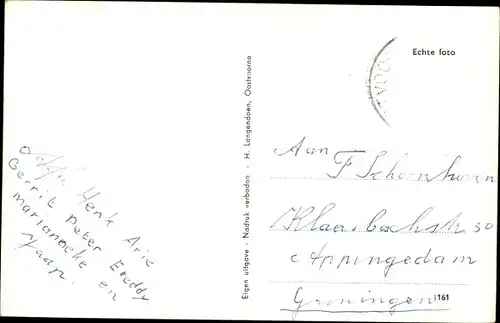 Henk Arie
Gerrit Peter Freddy
Marianneke en
Jaap.
Eigen uitgave - Nadruk verboden - H. Langendoen, Oostvoorne
Echte foto
Aan
F Schoonhoven
30
Appingedam
Groningen
1161